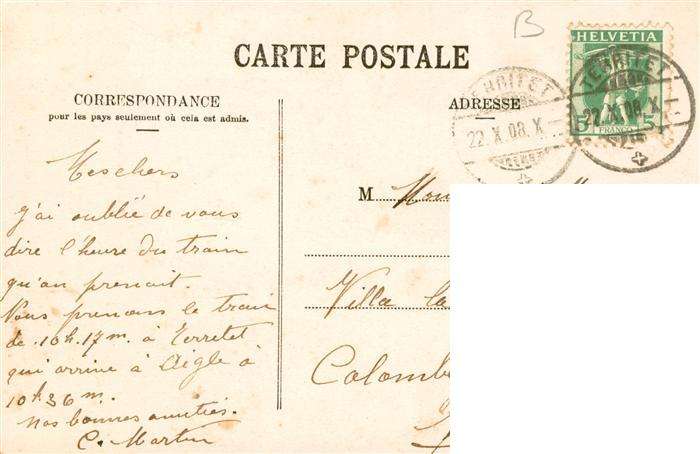 B
HELVETIA
CARTE POSTALE
TERRITET
22.X.08.X
TERRITET
22.X.08.X
5 FRANCO 5
CORRESPONDANCE
pour les pays seulement où cela est admis.
ADRESSE
Mes chers
j'ai oublié de vous
dire l'heure du train
qu'on prenait.
Nous prenons le train
de 10h.17m. à Territet
qui arrive à Aigle à
10h36m.
Nos bonnes amitiés.
C. Martin
M
Villa la
Colomb